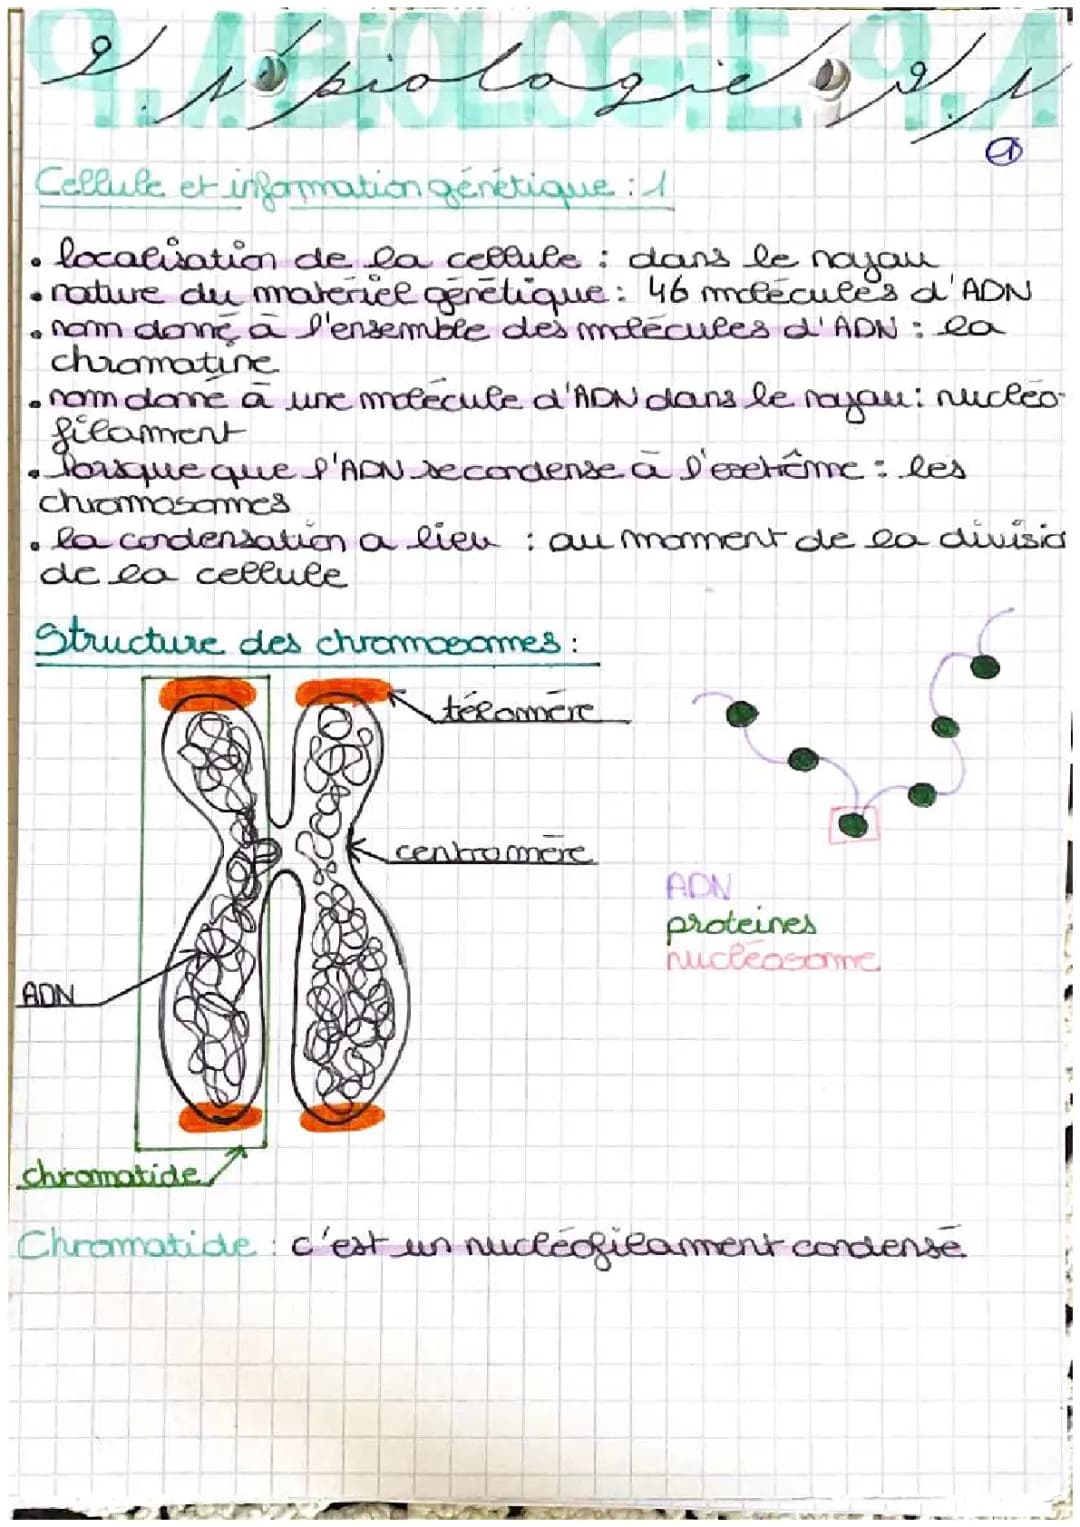 9.1 BIOLOGIE 9.1
9.1 biologie 9.1
1
Cellule et information génétique : 1
• localisation de la cellule : dans le noyau
• nature du matériel génétique : 46 molécules d'ADN
• nom donné à l'ensemble des molécules d'ADN : la
chromatine
• nom donné à une molécule d'ADN dans le noyau : nucléo-
filament
• lorsque que l'ADN se condense à l'extrême : les
chromosomes
• la condensation a lieu : au moment de la divisio
de la cellule
Structure des chromosomes :
télomère
centromère
ADN
proteines
nucléosome
ADN
chromatide
Chromatide : c'est un nucléofilament condensé